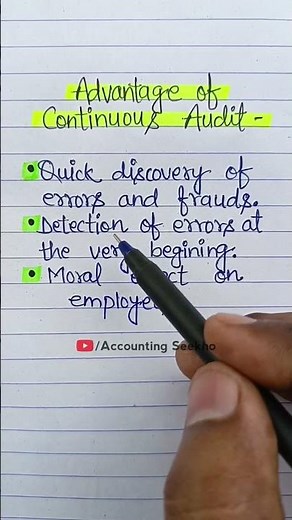 Advantage of
Continuous Audit -
• Quick discovery of
errors and frauds.
• Detection of errors at
the very begining.
• Moral on
/Accounting Seekho